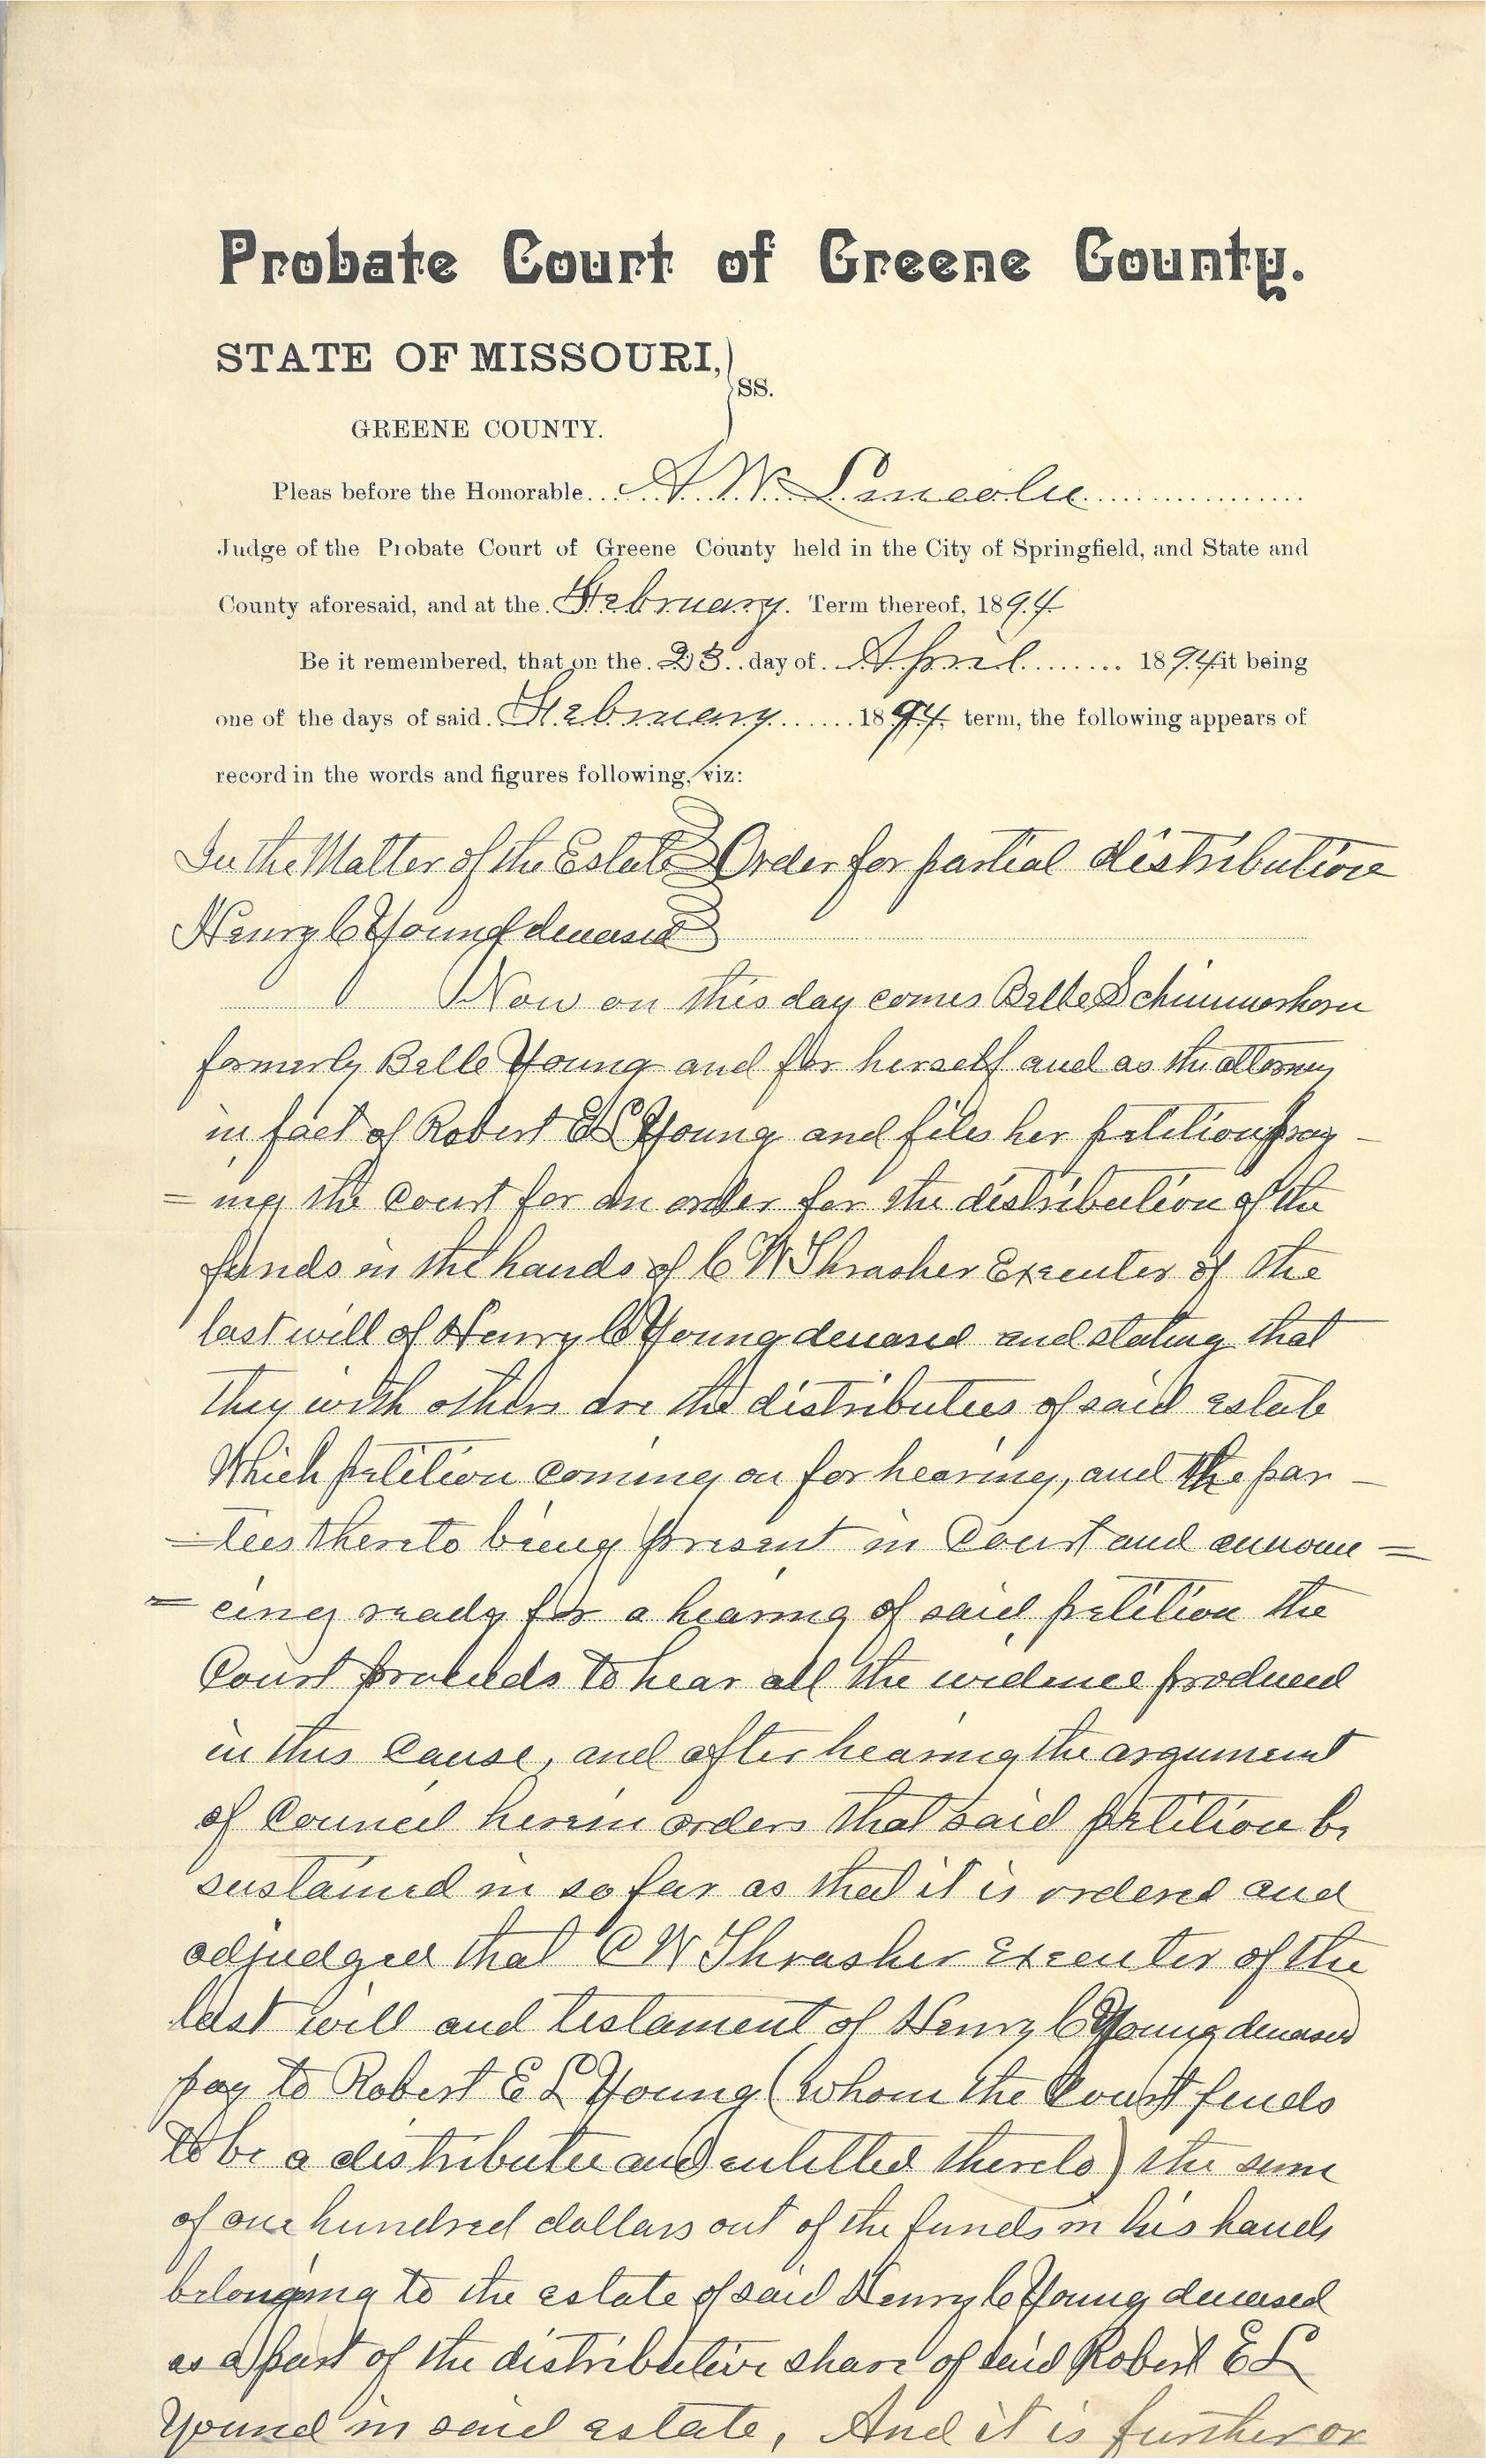 Probate Court of Greene County.
STATE OF MISSOURI,
SS.
GREENE COUNTY.
Pleas before the Honorable A. W. Lincoln
Judge of the Probate Court of Greene County held in the City of Springfield, and State and
County aforesaid, and at the February Term thereof, 1894
Be it remembered, that on the 23 day of April 1894 it being
one of the days of said February 1894 term, the following appears of
record in the words and figures following, viz:
In the Matter of the Estate Order for partial distribution
Henry C Young deceased
Now on this day comes Belle Schimmerhorn
formerly Belle Young and for herself and as the attorney
in fact of Robert E L Young and files her petition pray -
= ing the Court for an order for the distribution of the
funds in the hands of C W Thrasher Executer of the
last will of Henry C Young deceased and stating that
they with others are the distributees of said estate
Which petition coming on for hearing, and the par -
- ties thereto being present in Court and announ =
= cing ready for a hearing of said petition the
Court proceeds to hear all the evidence produced
in this Cause, and after hearing the argument
of Council herein orders that said petition be
sustained in so far as that it is ordered and
adjudged that C W Thrasher Executer of the
last will and testament of Henry C Young deceased
pay to Robert E L Young (whom the Court finds
to be a distributee and entitled thereto) the sum
of one hundred dollars out of the funds in his hands
belonging to the estate of said Henry C Young deceased
as a part of the distributive share of said Robert E L
Young in said estate, And it is further or